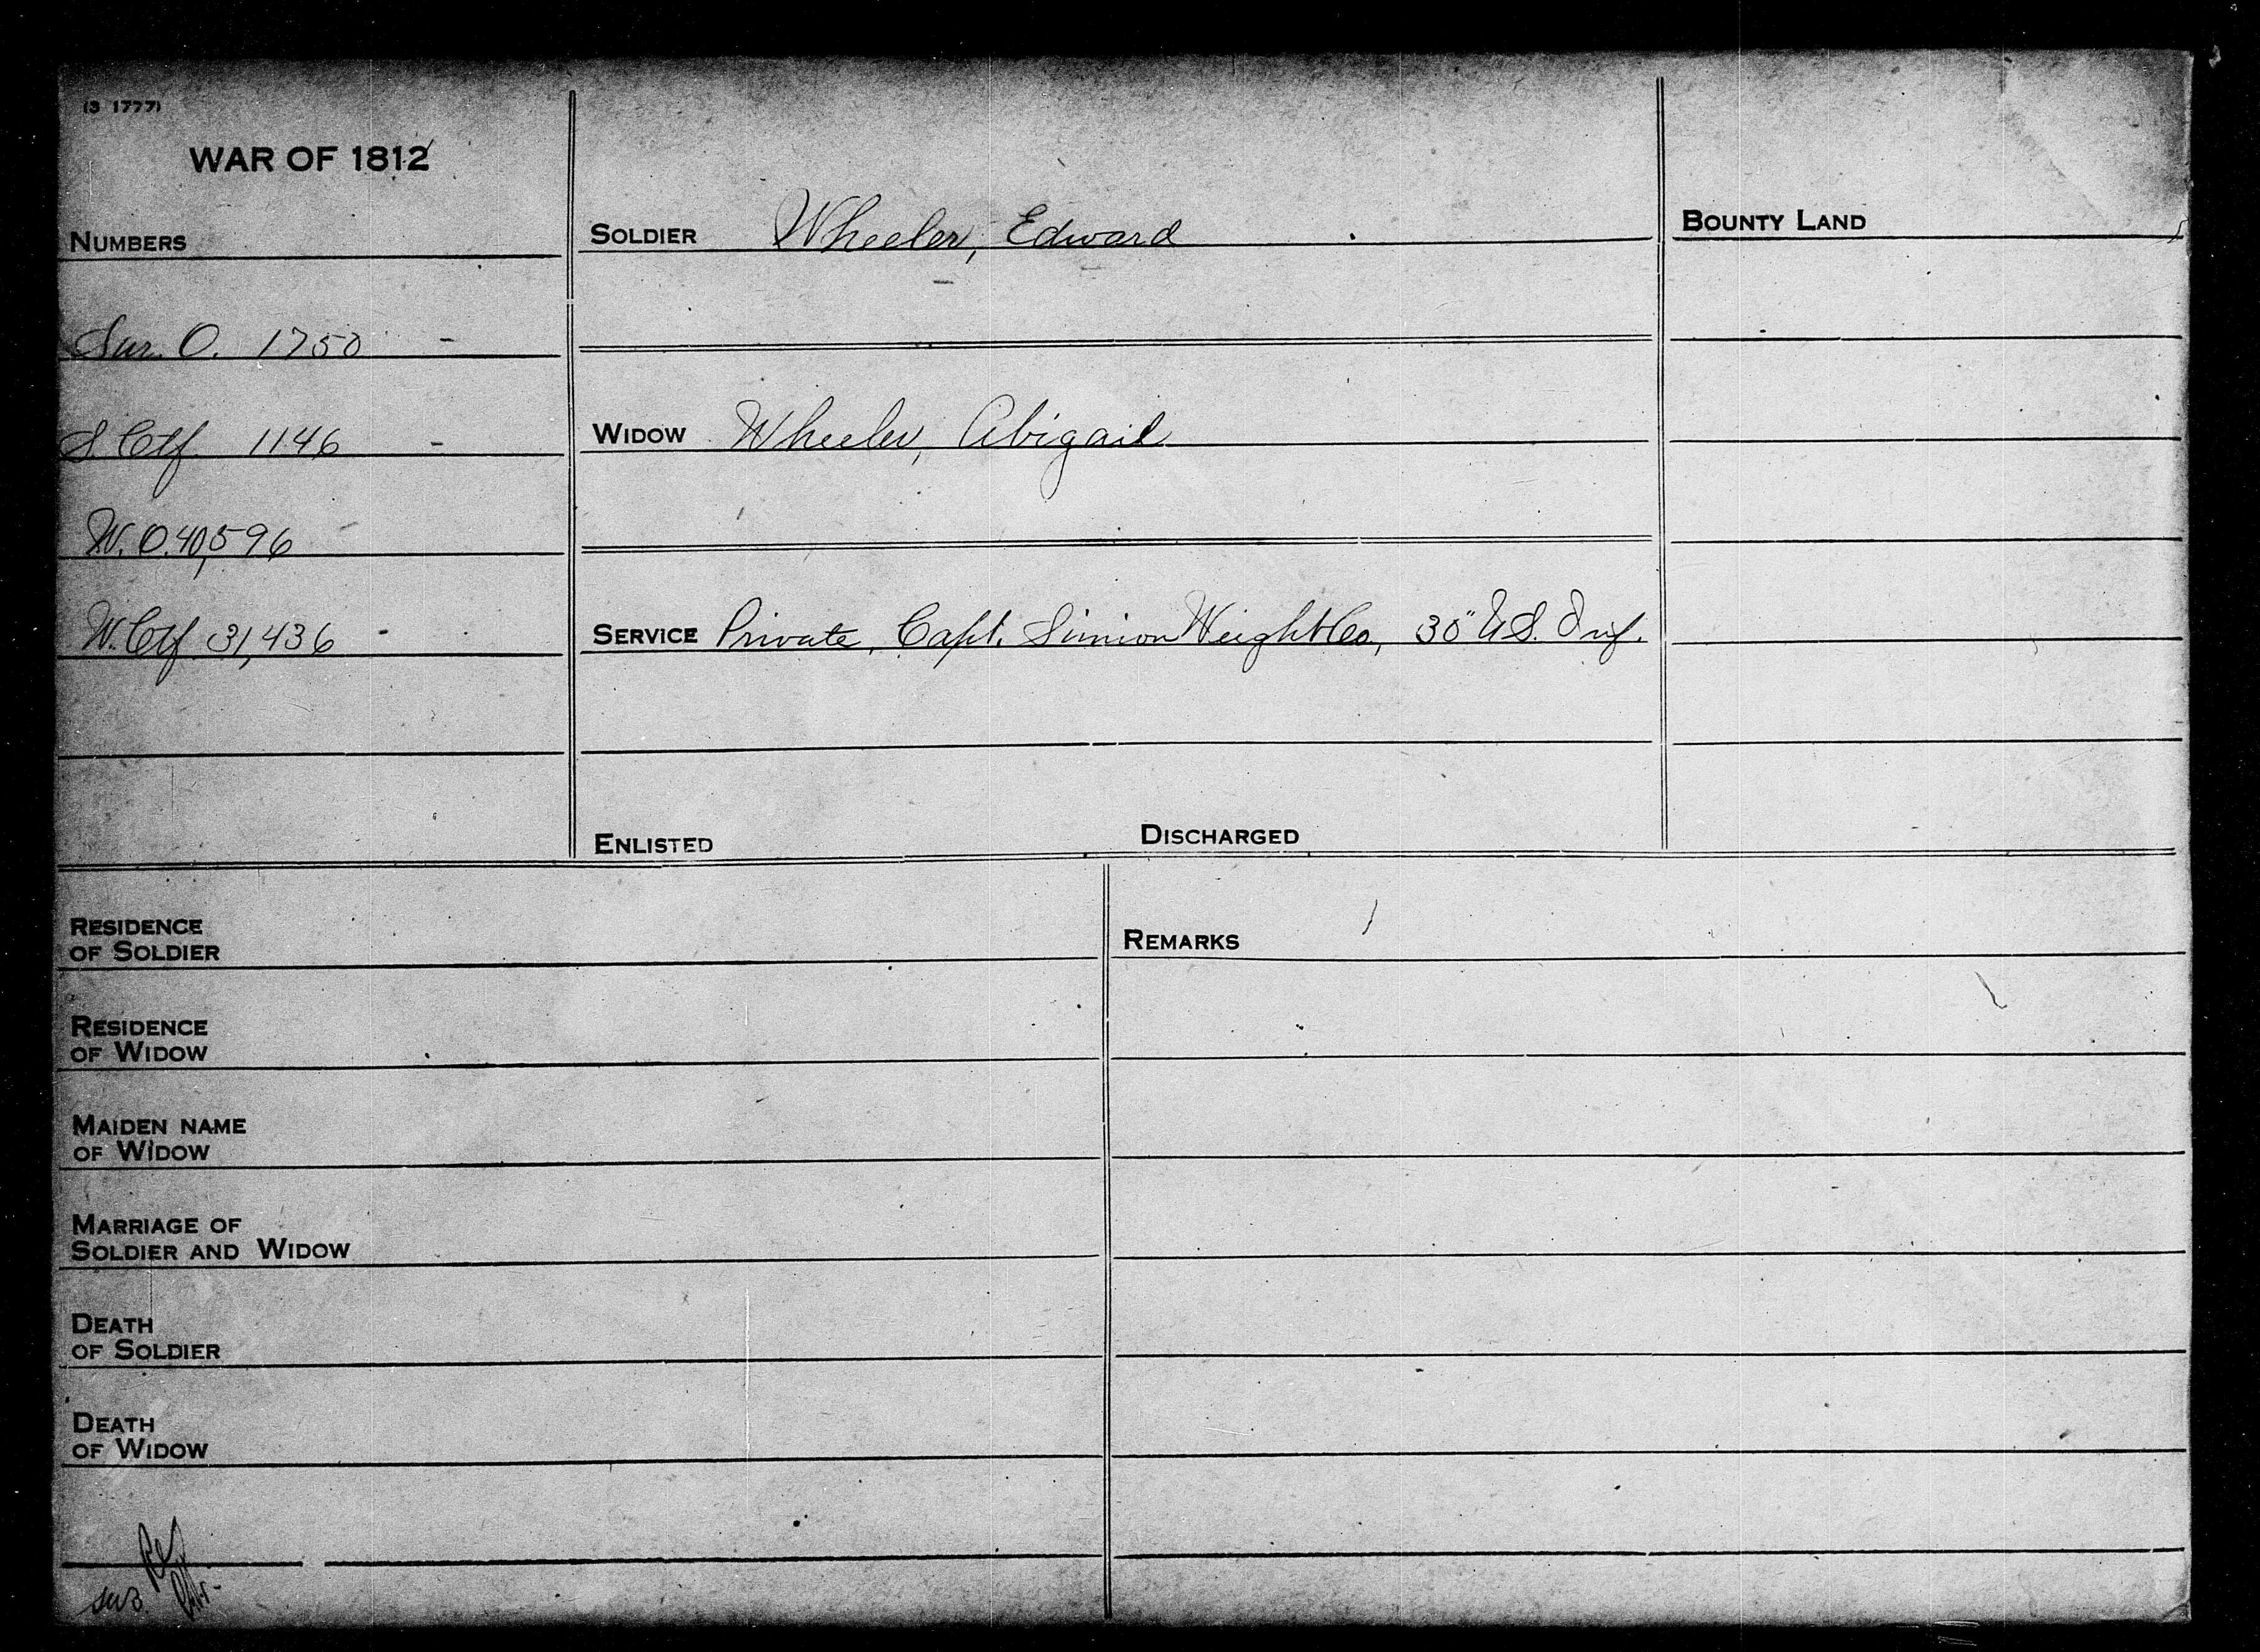 (3 1777)
WAR OF 1812
NUMBERS
Sur. O. 1750 -
S Ctf. 1146 -
W. O. 40,596
W. Ctf 31,436 -
SOLDIER Wheeler, Edward
WIDOW Wheeler, Abigail
SERVICE Private, Capt. Simion Weight Co, 30" U.S. Inf.
ENLISTED
DISCHARGED
BOUNTY LAND
RESIDENCE
OF SOLDIER
RESIDENCE
OF WIDOW
MAIDEN NAME
OF WIDOW
MARRIAGE OF
SOLDIER AND WIDOW
DEATH
OF SOLDIER
DEATH
OF WIDOW
REMARKS